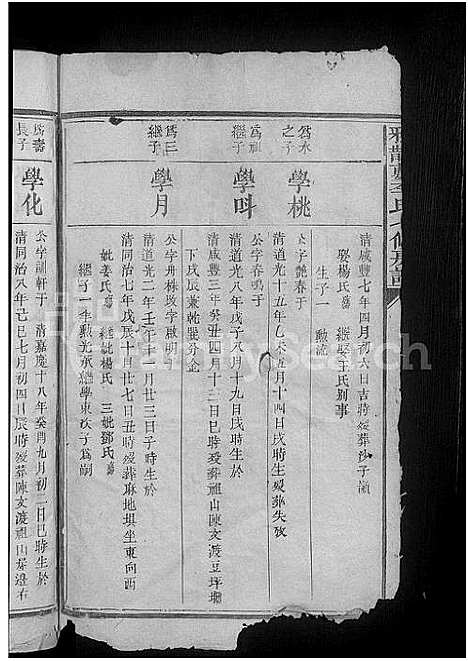 為永
之子
學桃
公字艷春于
清道光十五年乙未五月十四日戌時生歿葬失攷
清咸豐七年四月初六日吉時歿葬沙子嶺
娶楊氏 繼娶王氏別事
生子一 勳流
為祖
繼子
學呌
公字春鳴于
清道光八年戊子八月十九日戌時生於
清咸豐三年癸丑四月十三日巳時歿葬祖山陳文渡豆坪壠
下戌辰兼乾巽分金
為三
繼子
學月
公字舟株改字啟明
清道光二年壬午十一月廿三日子時生於
清同治七年戊辰十月廿七日丑時歿葬麻地埧坐東向西
妣姜氏 繼妣楊氏 三妣鄧氏
繼子一李勳光承繼學東次子為嗣
為壽
長子
學化
公字訓軒于 清嘉慶十八年癸酉九月初二日巳時生於
清同治八年己巳七月初四日辰時歿葬陳文渡祖山墓邊右